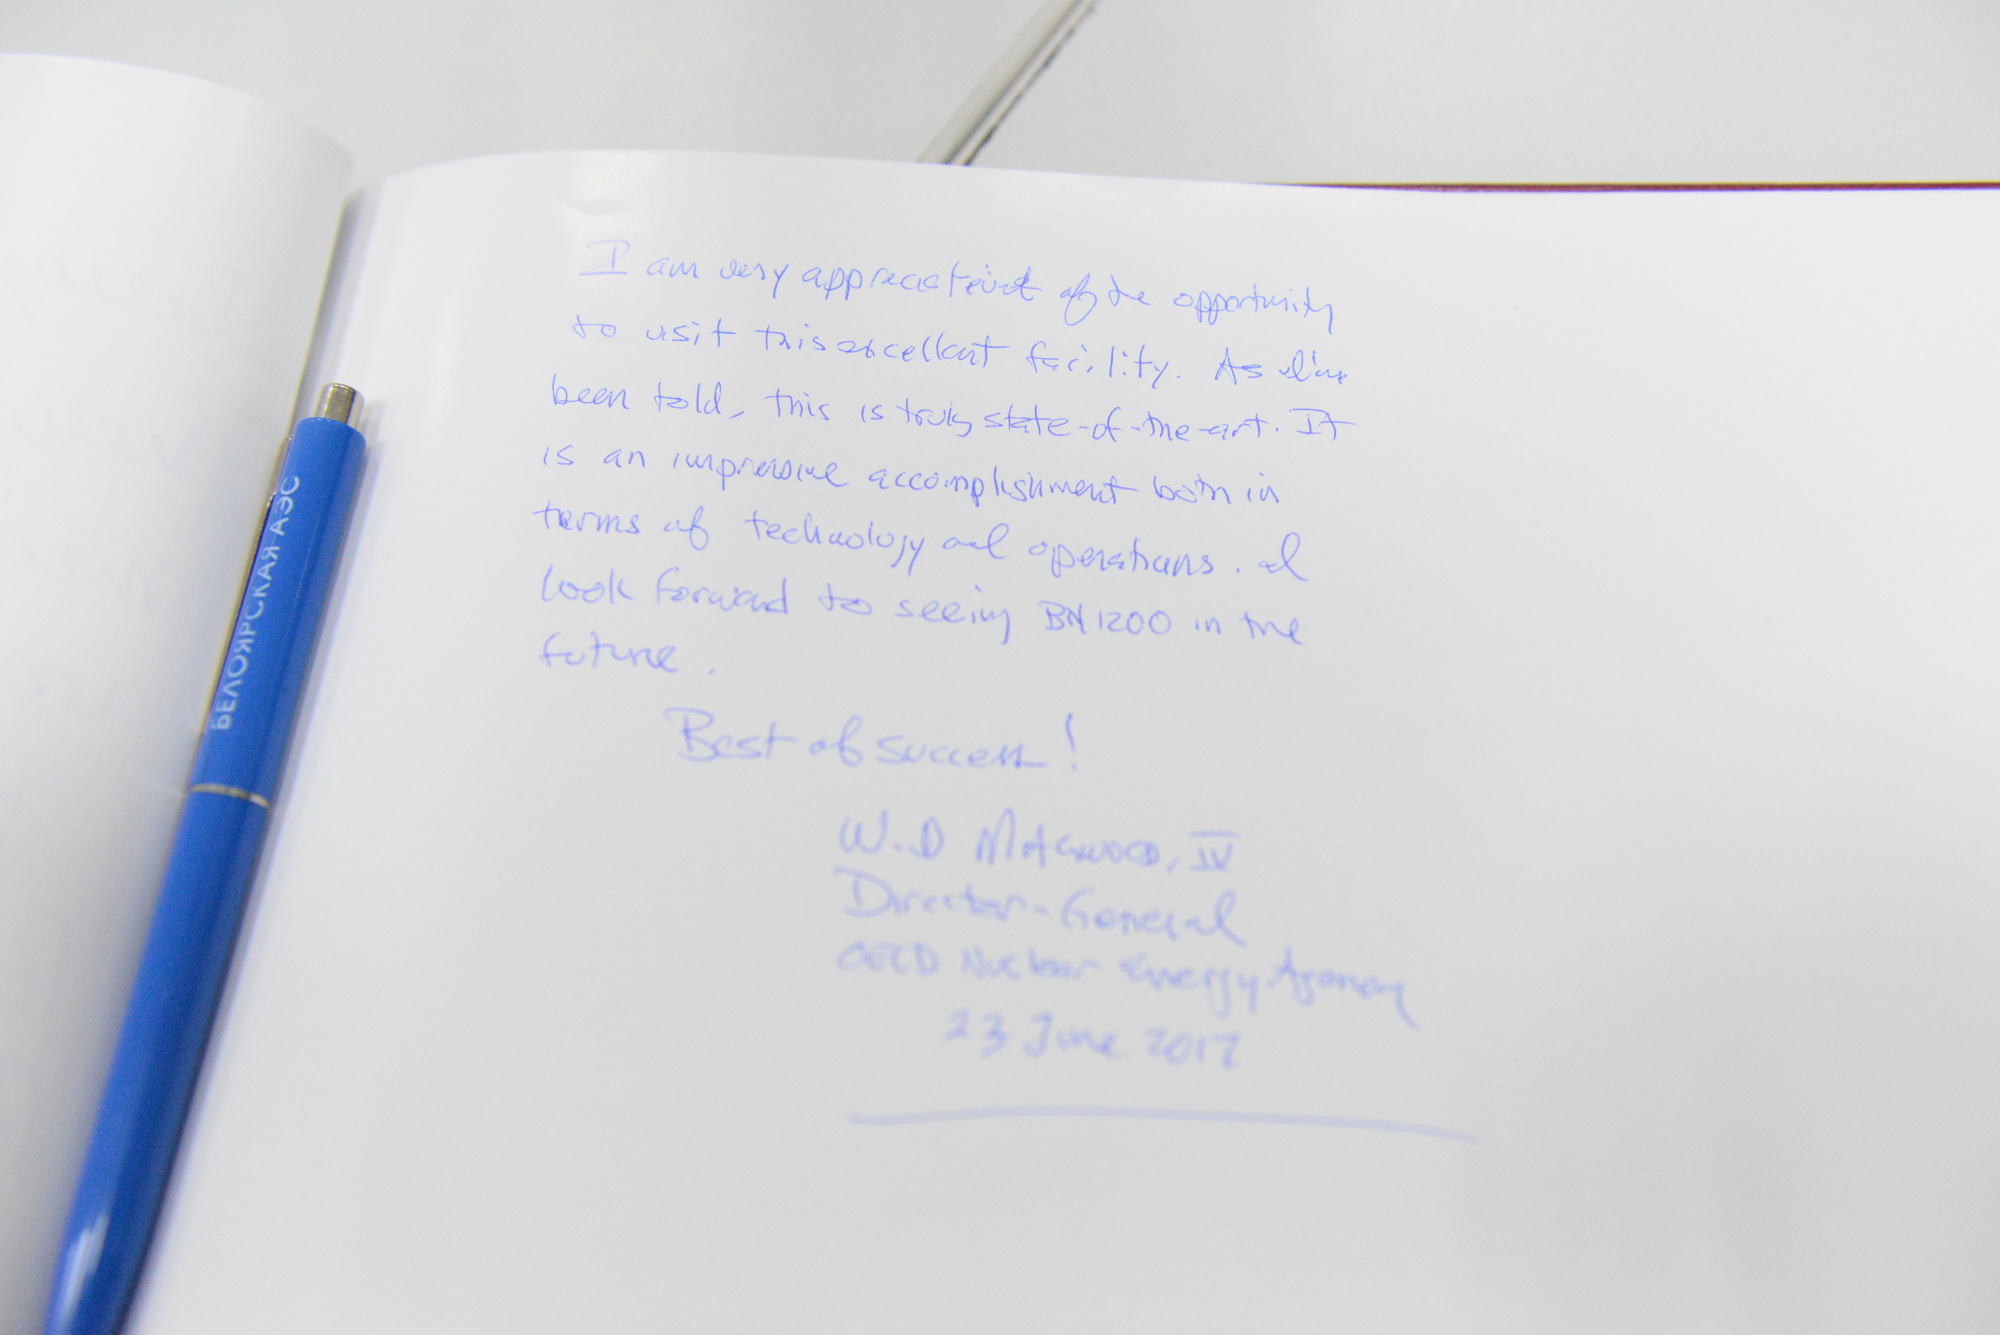 I am very appreciative of the opportunity
to visit this excellent facility. As I've
been told, this is truly state-of-the-art. It
is an impressive accomplishment both in
terms of technology and operations. I
look forward to seeing BN1200 in the
future.
Best of success!
W.D MAGWOOD, IV
Director-General
OECD Nuclear Energy Agency
23 June 2017
БЕЛОЯРСКАЯ АЭС